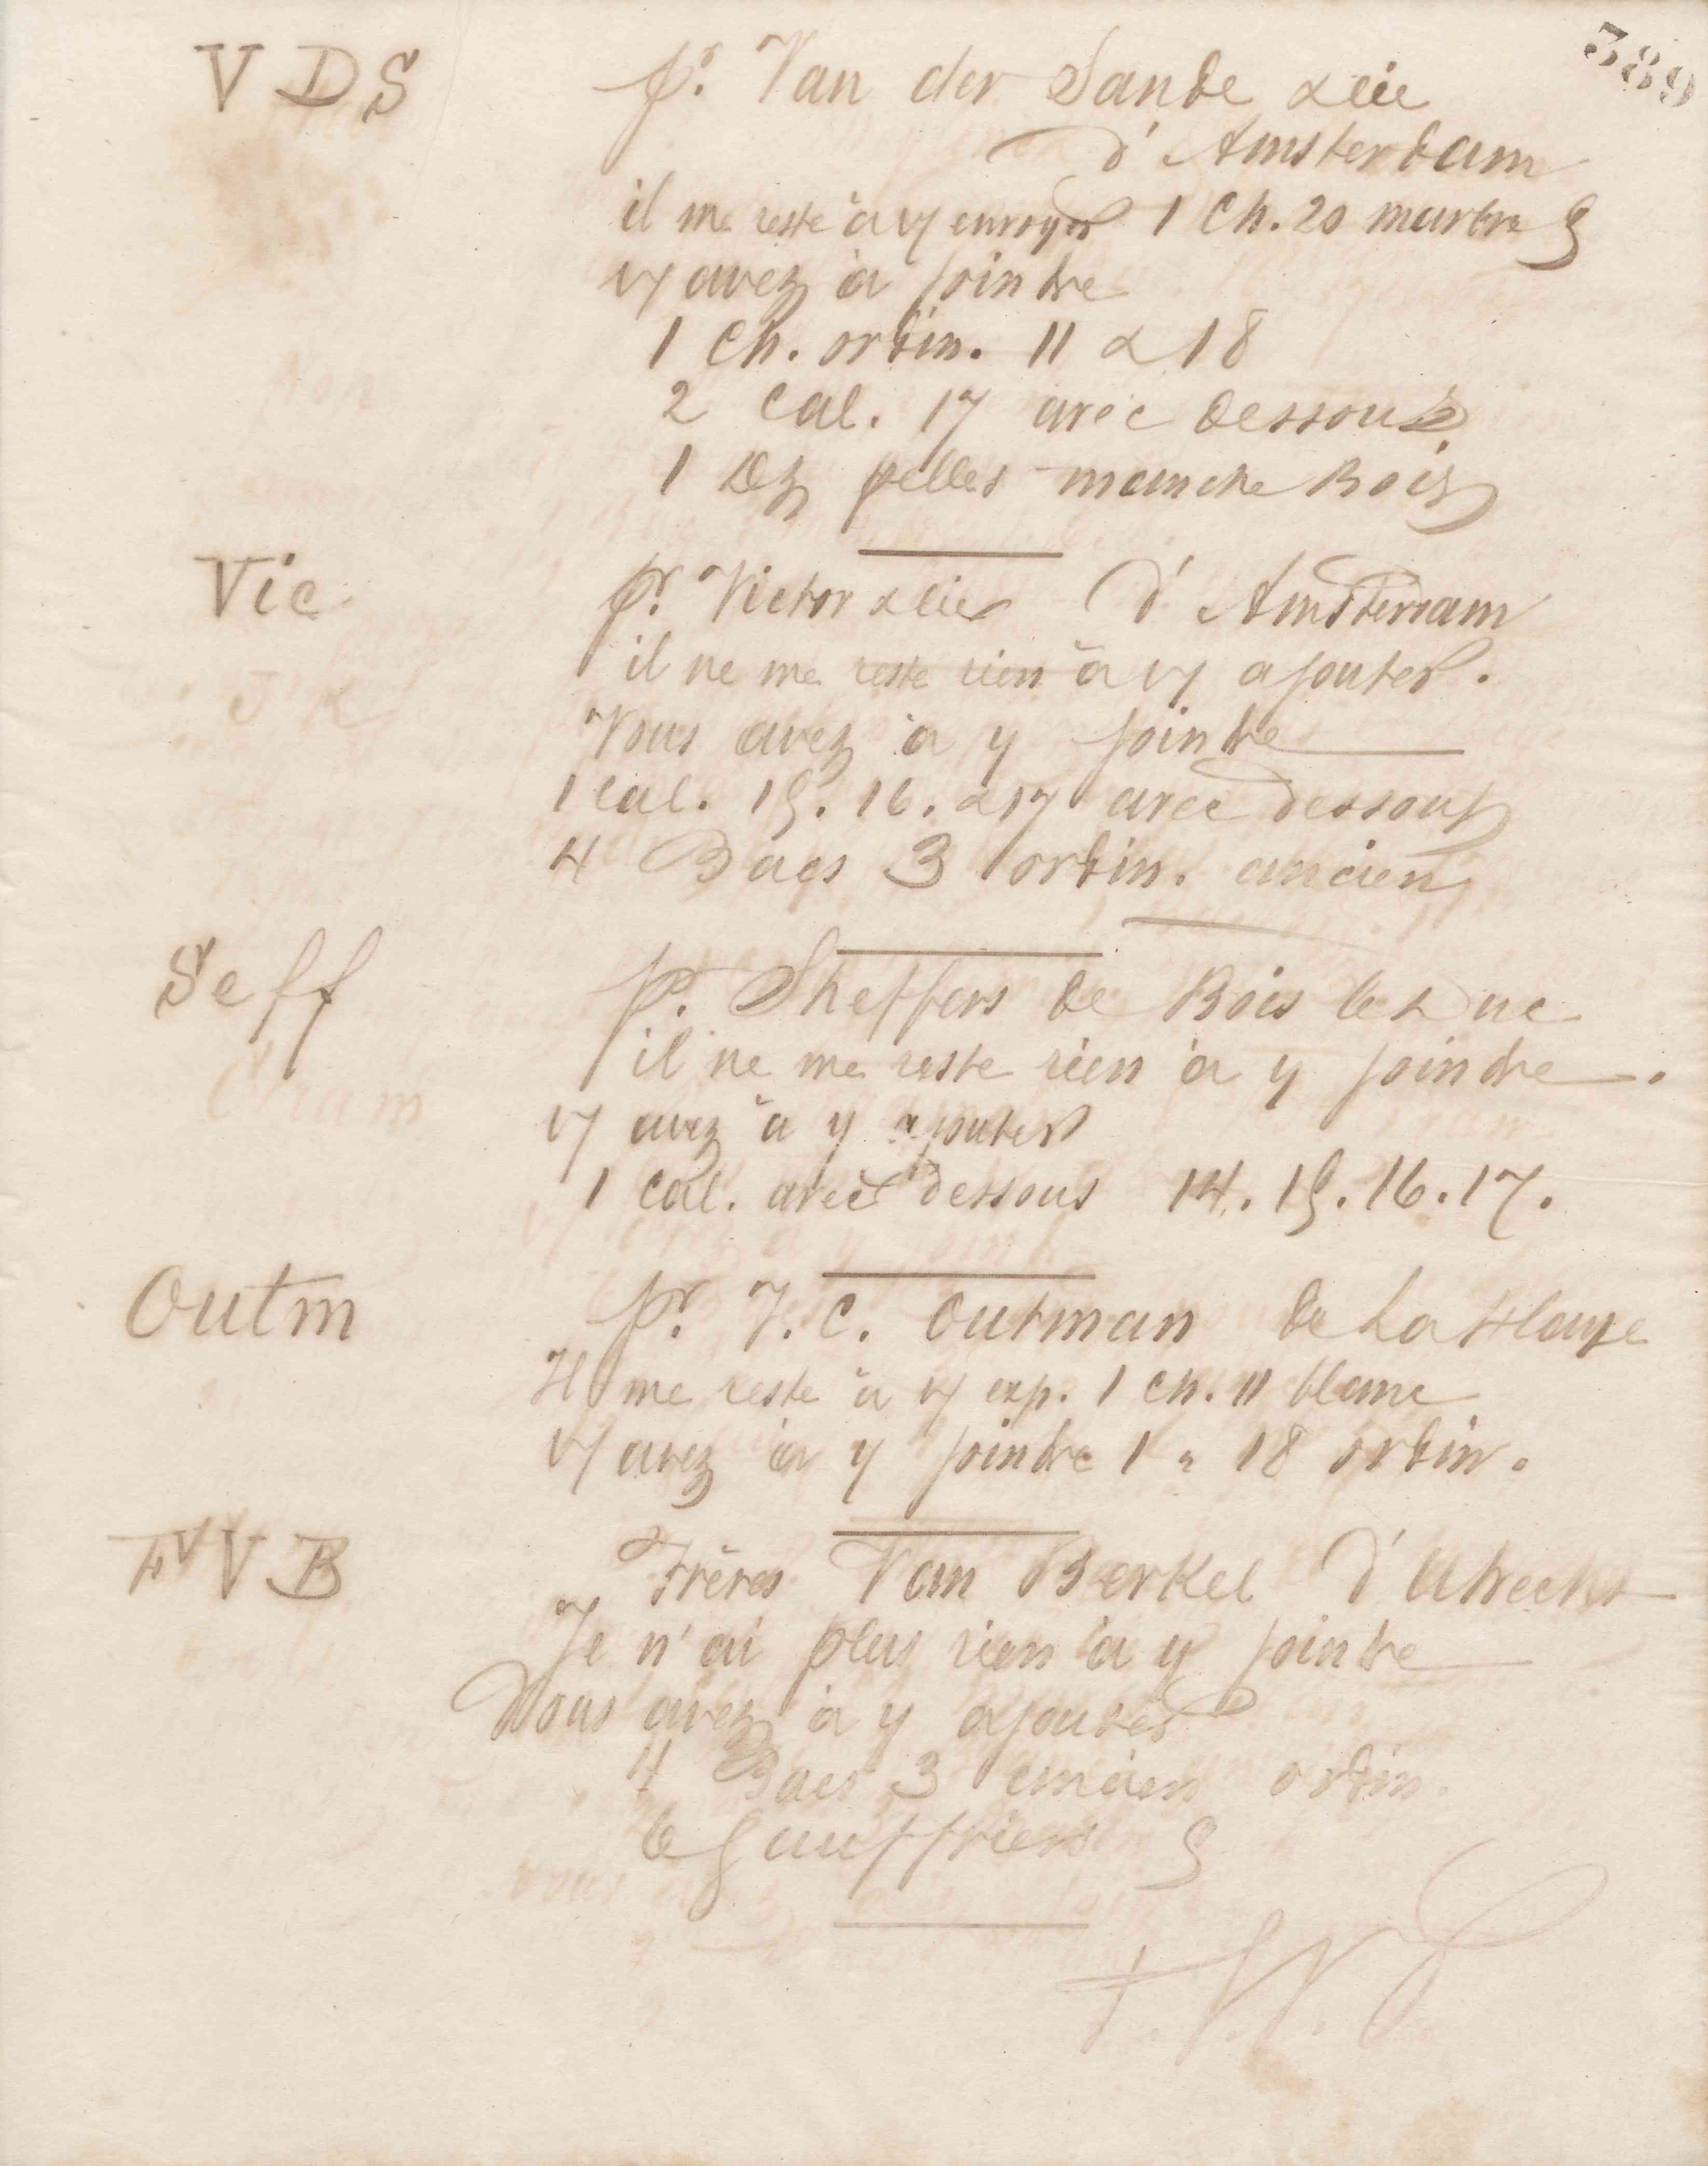 389
VDS pr. Van der Sande & Cie
d'Amsterdam
il me reste à y envoyer 1 Ch. 20 marbre
vs avez à joindre
1 Ch. ordin. 11 & 18
2 Cal. 17 avec dessous
1 Dz pelles manche Bois
Vic pr. Victor & Cie d'Amsterdam
il ne me reste rien à y ajouter.
Vous avez à y joindre
1 Cal. 15. 16. & 17 avec dessous
4 Bacs 3 ordin. ancien
Seff pr. Sheffers de Bois le Duc
il ne me reste rien à y joindre.
vs avez à y ajouter
1 Cal. avec dessous 14. 15. 16. 17.
Outm pr. J. C. Outman de La Haye
Il me reste à y exp. 1 ch. 11 blanc
vs avez à y joindre 1 " 18 ordin.
FVB Frères Van Berkel d'Utrecht
Je n'ai plus rien à y joindre
Vous avez à y ajouter
4 Bacs 3 ancien ordin.
6 Gauffriers